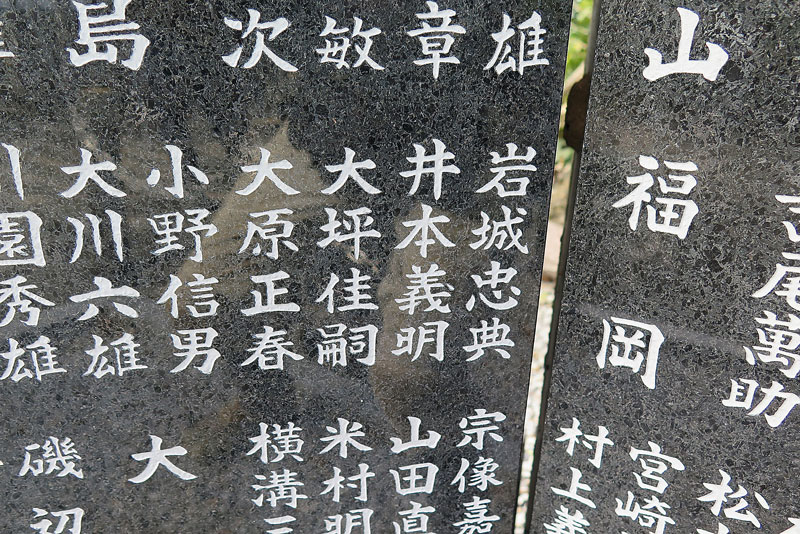 尾萬助
山福岡
松
宮崎
村上義
雄
章
敏
次
島
岩城忠典
井本義明
大坪佳嗣
大原正春
小野信男
大川六雄
園秀雄
宗像嘉
山田直
米村明
横溝三
大
磯辺